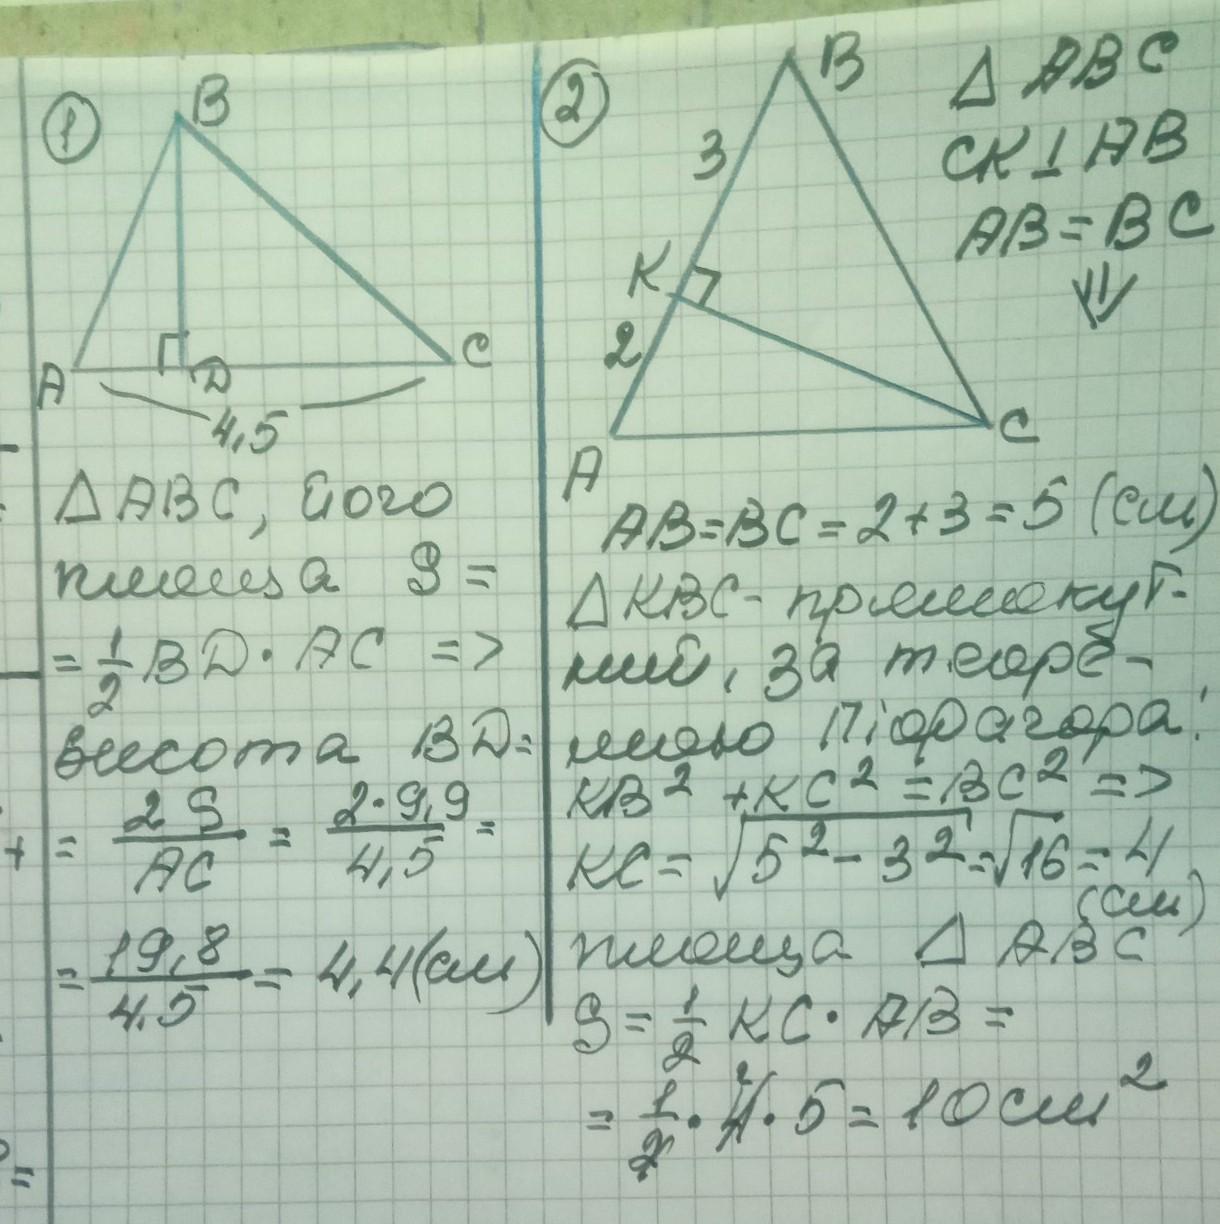 1
B
A
D
C
4,5
△ABC, його
площа S =
= 1/2 BD · AC =>
висота BD =
= 2S/AC = 2·9,9/4,5 =
= 19,8/4,5 = 4,4 (см)
2
B
3
K
2
A
C
△ ABC
CK⊥AB
AB = BC
⇓
AB = BC = 2+3 = 5 (см)
△KBC - прямокут-
ний, за теоре-
мою Піфагора:
KB² + KC² = BC² =>
KC = √5² - 3² = √16 = 4
(см)
площа △ ABC
S = 1/2 KC · AB =
= 1/2 · 4 · 5 = 10 см²